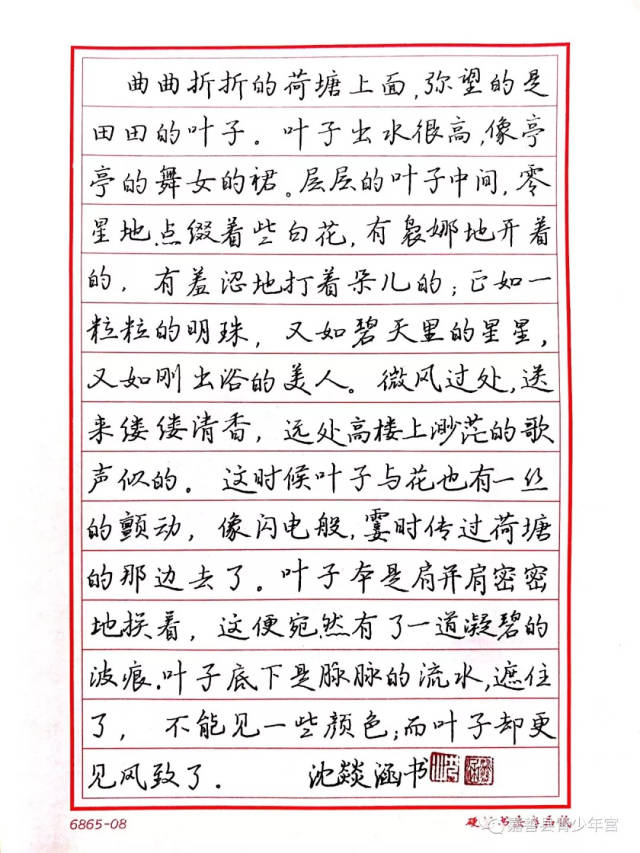 曲曲折折的荷塘上面,弥望的是
田田的叶子。叶子出水很高,像亭
亭的舞女的裙。层层的叶子中间,零
星地点缀着些白花,有袅娜地开着
的,有羞涩地打着朵儿的;正如一
粒粒的明珠,又如碧天里的星星,
又如刚出浴的美人。微风过处,送
来缕缕清香,远处高楼上渺茫的歌
声似的。这时候叶子与花也有一丝
的颤动,像闪电般,霎时传过荷塘
的那边去了。叶子本是肩并肩密密
地挨着,这便宛然有了一道凝碧的
波痕.叶子底下是脉脉的流水,遮住
了,不能见一些颜色;而叶子却更
见风致了. 沈燚涵书
6865-08
嘉善县青少年宫